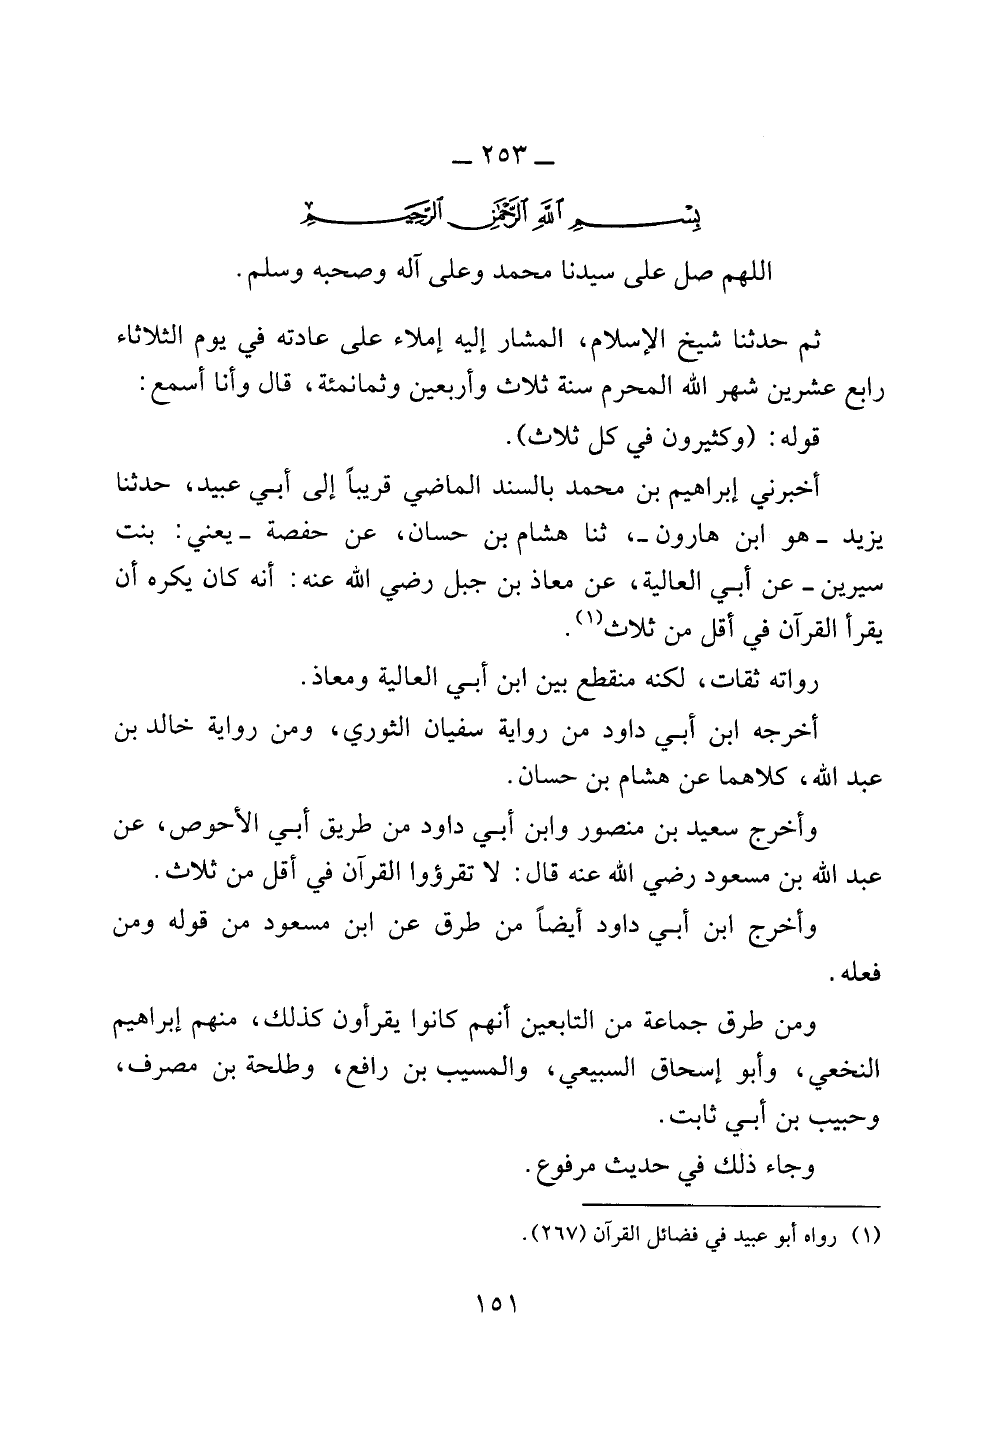 ــ ٢٥٣ ــ
بِسْمِ اللَّهِ الرَّحْمَٰنِ الرَّحِيمِ
اللهم صل على سيدنا محمد وعلى آله وصحبه وسلم.
ثم حدثنا شيخ الإسلام، المشار إليه إملاء على عادته في يوم الثلاثاء
رابع عشرين شهر الله المحرم سنة ثلاث وأربعين وثمانمئة، قال وأنا أسمع:
قوله: (وكثيرون في كل ثلاث).
أخبرني إبراهيم بن محمد بالسند الماضي قريباً إلى أبي عبيد، حدثنا
يزيد ــ هو ابن هارون ــ، ثنا هشام بن حسان، عن حفصة ــ يعني: بنت
سيرين ــ عن أبي العالية، عن معاذ بن جبل رضي الله عنه: أنه كان يكره أن
يقرأ القرآن في أقل من ثلاث(١).
رواته ثقات، لكنه منقطع بين ابن أبي العالية ومعاذ.
أخرجه ابن أبي داود من رواية سفيان الثوري، ومن رواية خالد بن
عبد الله، كلاهما عن هشام بن حسان.
وأخرج سعيد بن منصور وابن أبي داود من طريق أبي الأحوص، عن
عبد الله بن مسعود رضي الله عنه قال: لا تقرؤوا القرآن في أقل من ثلاث.
وأخرج ابن أبي داود أيضاً من طرق عن ابن مسعود من قوله ومن
فعله.
ومن طرق جماعة من التابعين أنهم كانوا يقرأون كذلك، منهم إبراهيم
النخعي، وأبو إسحاق السبيعي، والمسيب بن رافع، وطلحة بن مصرف،
وحبيب بن أبي ثابت.
وجاء ذلك في حديث مرفوع.
(١) رواه أبو عبيد في فضائل القرآن (٢٦٧).
١٥١